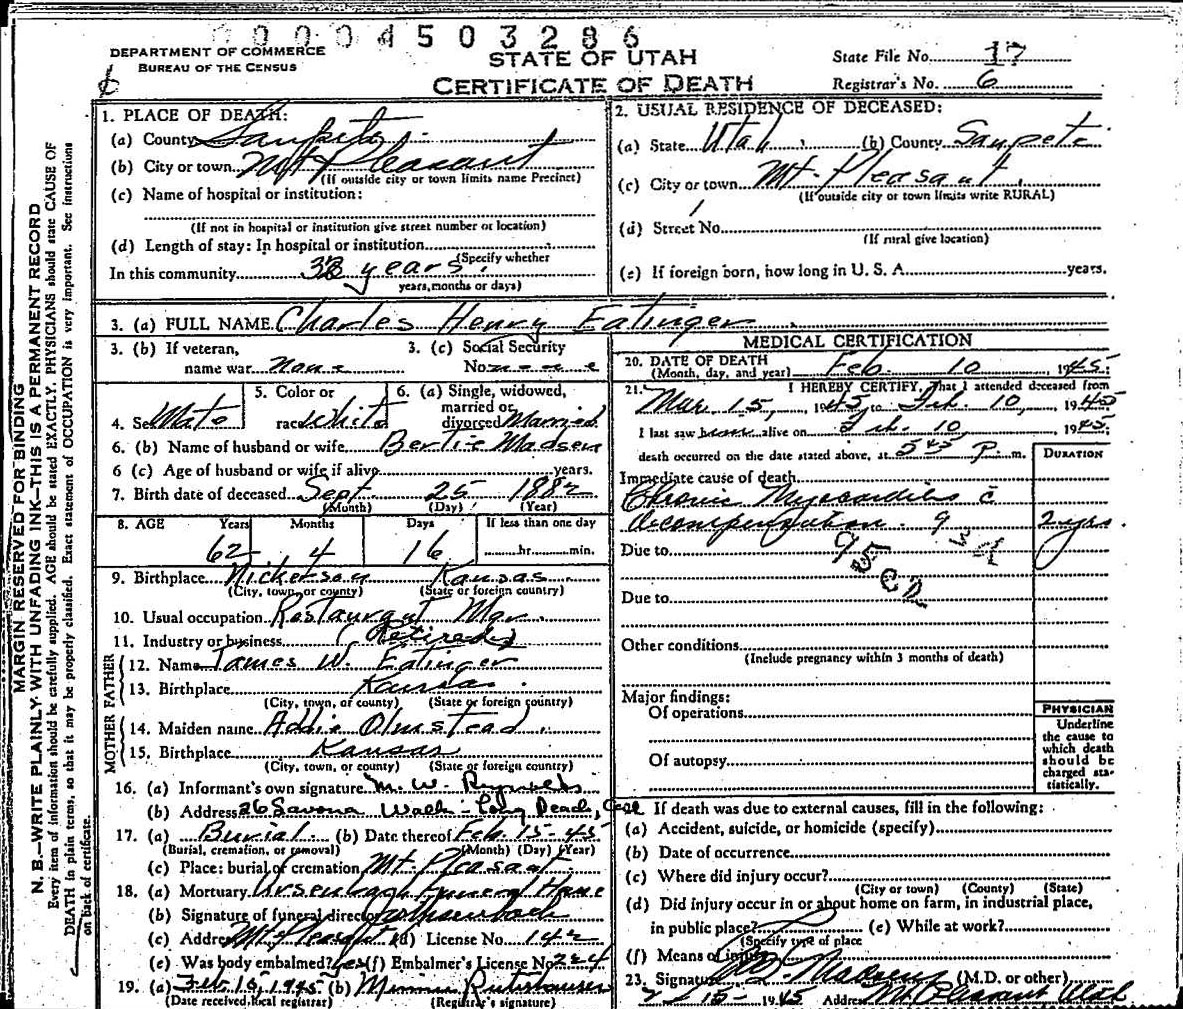 00004503286
DEPARTMENT OF COMMERCE
BUREAU OF THE CENSUS
STATE OF UTAH
CERTIFICATE OF DEATH
State File No. 17
Registrar's No. 6
MARGIN RESERVED FOR BINDING
N. B.—WRITE PLAINLY WITH UNFADING INK—THIS IS A PERMANENT RECORD
Every item of information should be carefully supplied. AGE should be stated EXACTLY. PHYSICIANS should state CAUSE OF
DEATH in plain terms, so that it may be properly classified. Exact statement of OCCUPATION is very important. See instructions
on back of certificate.
1. PLACE OF DEATH:
(a) County Sanpete
(b) City or town Mt Pleasant
(If outside city or town limits name Precinct)
(c) Name of hospital or institution:
(If not in hospital or institution give street number or location)
(d) Length of stay: In hospital or institution
(Specify whether
In this community 38 years.
years, months or days)
2. USUAL RESIDENCE OF DECEASED:
(a) State Utah (b) County Sanpete
(c) City or town Mt. Pleasant
(If outside city or town limits write RURAL)
(d) Street No.
(If rural give location)
(e) If foreign born, how long in U. S. A. years.
3. (a) FULL NAME Charles Henry Eatinger
3. (b) If veteran,
name war none
3. (c) Social Security
No. none
4. Sex Male
5. Color or
race White
6. (a) Single, widowed,
married or
divorced Married
6. (b) Name of husband or wife Bertie Madsen
6 (c) Age of husband or wife if alive years.
7. Birth date of deceased Sept 25 1882
(Month) (Day) (Year)
8. AGE Years Months Days If less than one day
62 4 16 hr. min.
9. Birthplace Nickerson Kansas
(City, town, or county) (State or foreign country)
10. Usual occupation Restaurant Mgr.
11. Industry or business (Retired)
FATHER
12. Name James W. Eatinger
13. Birthplace Kansas
(City, town, or county) (State or foreign country)
MOTHER
14. Maiden name Addie Olmstead
15. Birthplace Kansas
(City, town, or county) (State or foreign country)
16. (a) Informant's own signature M. W. Reynolds
(b) Address 26 Savona Walk - Long Beach, Cal
17. (a) Burial (b) Date thereof Feb. 15-45
(Burial, cremation, or removal) (Month) (Day) (Year)
(c) Place: burial or cremation Mt. Pleasant
18. (a) Mortuary Ursenbach Funeral Home
(b) Signature of funeral director Ursenbach
(c) Address Mt Pleasant (d) License No. 142
(e) Was body embalmed? Yes (f) Embalmer's License No. 224
19. (a) Feb 15, 1945 (b) Minnie Rutishauser
(Date received local registrar) (Registrar's signature)
MEDICAL CERTIFICATION
20. DATE OF DEATH
(Month, day, and year) Feb. 10 1945.
21. I HEREBY CERTIFY, That I attended deceased from
Mar 15, 1943 to Feb. 10, 1945
I last saw him alive on Feb. 10, 1945.
death occurred on the date stated above, at 5 45 P. m.
DURATION
Immediate cause of death
Chronic Myocarditis c̄
decompensation. 93d 2 yrs.
95 c2
Due to
Due to
Other conditions
(Include pregnancy within 3 months of death)
Major findings:
Of operations
Of autopsy
PHYSICIAN
Underline
the cause to
which death
should be
charged sta-
tistically.
If death was due to external causes, fill in the following:
(a) Accident, suicide, or homicide (specify)
(b) Date of occurrence
(c) Where did injury occur?
(City or town) (County) (State)
(d) Did injury occur in or about home on farm, in industrial place,
in public place? (e) While at work?
(Specify type of place
(f) Means of injury
23. Signature Madsen (M.D. or other)
2-15-1945 Address Mt Pleasant Utah